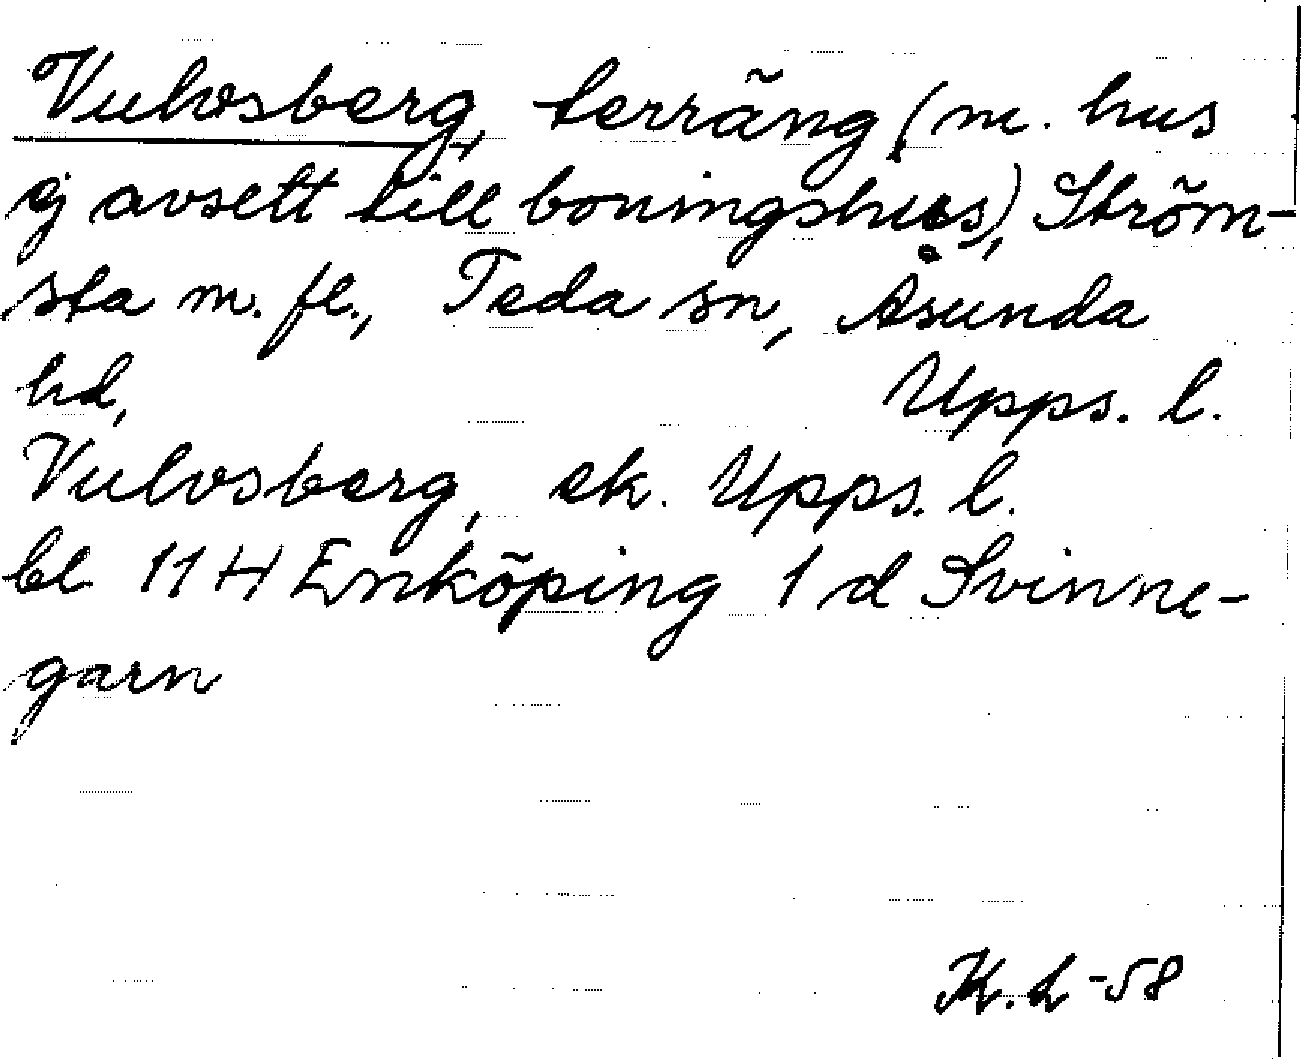 Vulvsberg, terräng (m. hus
ej avsett till boningshus), Ström-
sta m. fl., Teda sn, Åsunda
hd, Upps. l.
Vulvsberg, ek. Upps. l.
bl 11 H Enköping 1 d Svinne-
garn
K.L-58